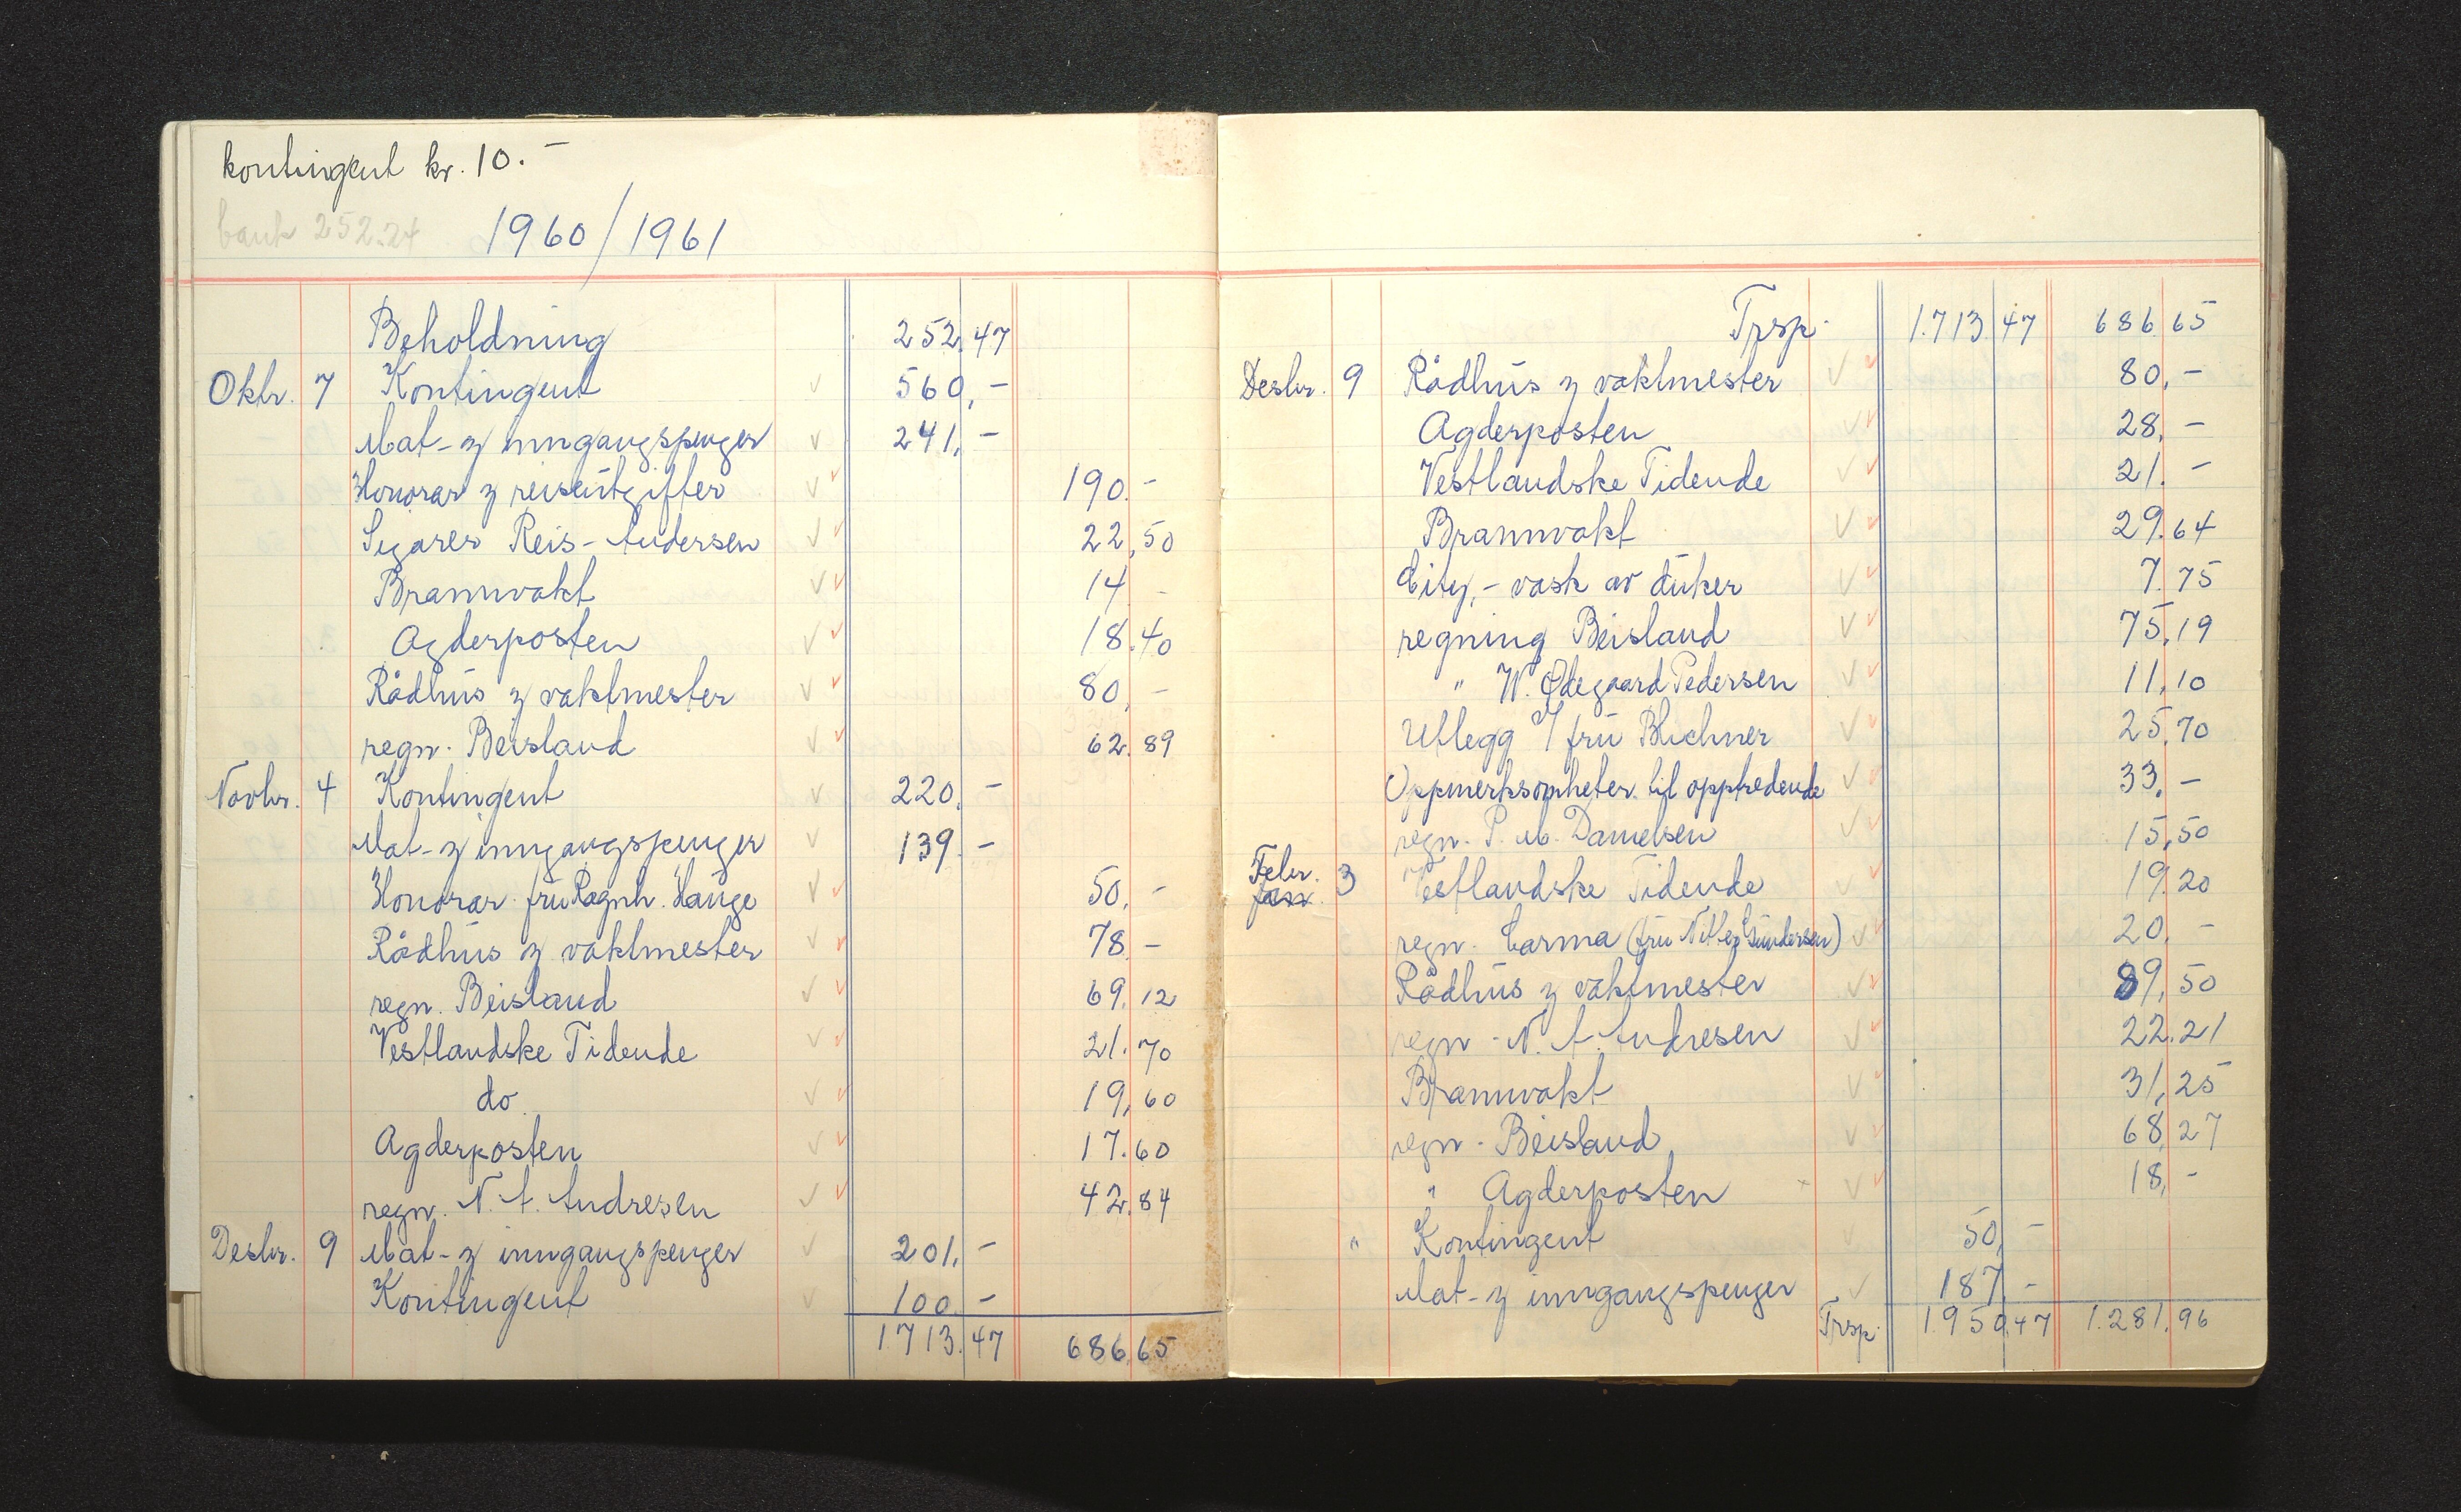 kontingent kr. 10.-
bank 252.24 1960/1961
Beholdning 252.47
Oktr. 7 Kontingent 560,-
Mat- & inngangspenger 241,-
Honorar & reiseutgifter 190.-
Sigarer Reis-Andersen 22,50
Brannvakt 14 -
Agderposten 18.40
Rådhus & vaktmester 80,-
regn. Beisland 62.89
Novbr. 4 Kontingent 220.-
Mat- & inngangspenger 139.-
Honorar fru Ragnh. Hauge 50,-
Rådhus & vaktmester 78.-
regn. Beisland 69.12
Vestlandske Tidende 21.70
do. 19,60
Agderposten 17.60
regn. N. A. Andresen 42.84
Desbr. 9 Mat- & inngangspenger 201,-
Kontingent 100.-
1713.47 686,65
Trsp. 1.713 47 686 65
Desbr. 9 Rådhus & vaktmester 80,-
Agderposten 28,-
Vestlandske Tidende 21.-
Brannvakt 29.64
City,- vask av duker 7.75
regning Beisland 75,19
" W. Ødegaard Pedersen 11,10
Utlegg v/ fru Blichner 25,70
Oppmerksomheter til opptredende 33,-
regn. P. M. Danielsen 15,50
Febr.
Jan 3 Vestlandske Tidende 19.20
regn. Carma (fru Gundersen) 20.-
Rådhus & vaktmester 89,50
regn. N. A. Andresen 22.21
Brannvakt 31,25
regn. Beisland 68,27
" Agderposten 18,-
" Kontingent 50,-
Mat- & inngangspenger 187,-
Trsp. 1.950.47 1.281.96